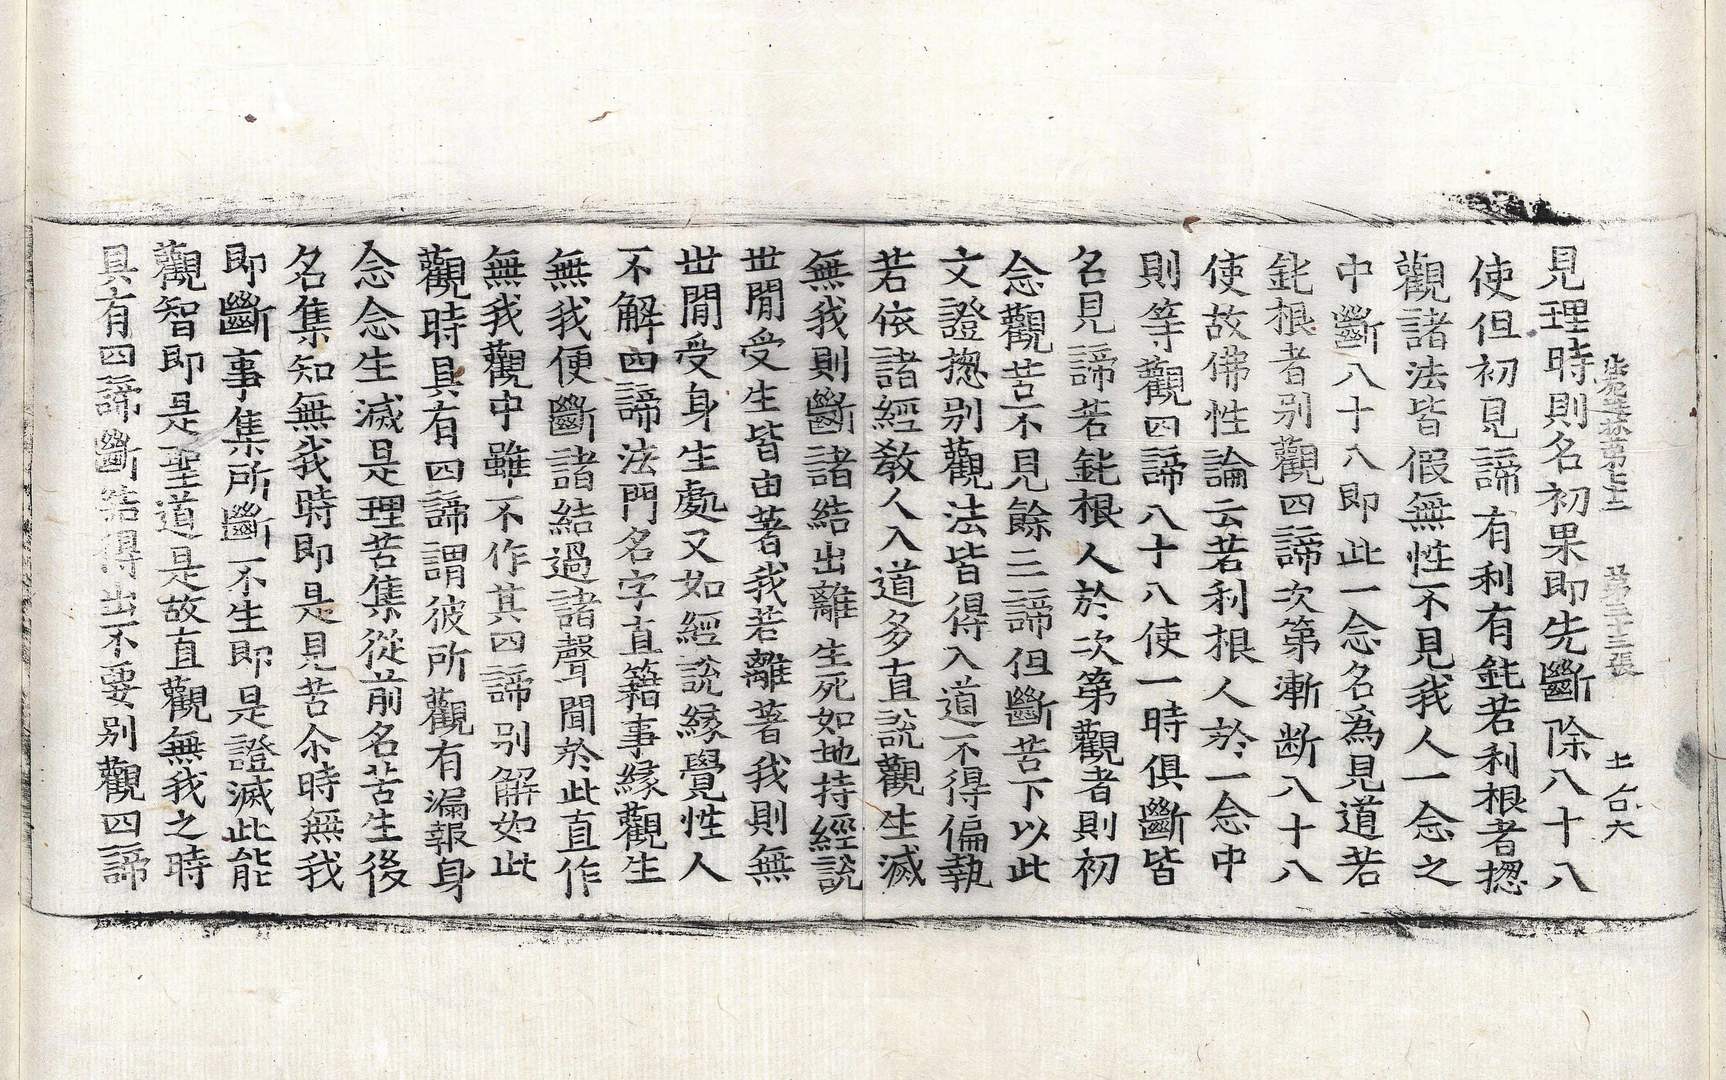 法苑珠林第七十二　第三十三張　士合大
見理時則名初果即先斷除八十八
使但初見諦有利有鈍若利根者揔
觀諸法皆假無性不見我人一念之
中斷八十八即此一念名為見道若
鈍根者別觀四諦次第漸斷八十八
使故佛性論云若利根人於一念中
則等觀四諦八十八使一時俱斷皆
名見諦若鈍根人於次第觀者則初
念觀苦不見餘三諦但斷苦下以此
文證揔別觀法皆得入道不得偏執
若依諸經教人入道多直說觀生滅
無我則斷諸結出離生死如地持經說
世間受生皆由著我若離著我則無
世間受身生處又如經說緣覺性人
不解四諦法門名字直籍事緣觀生
無我便斷諸結過諸聲聞於此直作
無我觀中雖不作其四諦別解如此
觀時具有四諦謂彼所觀有漏報身
念念生滅是理苦集從前名苦生後
名集知無我時即是見苦尒時無我
即斷事集所斷不生即是證滅此能
觀智即是聖道是故直觀無我之時
具有四諦斷結得出不要別觀四諦